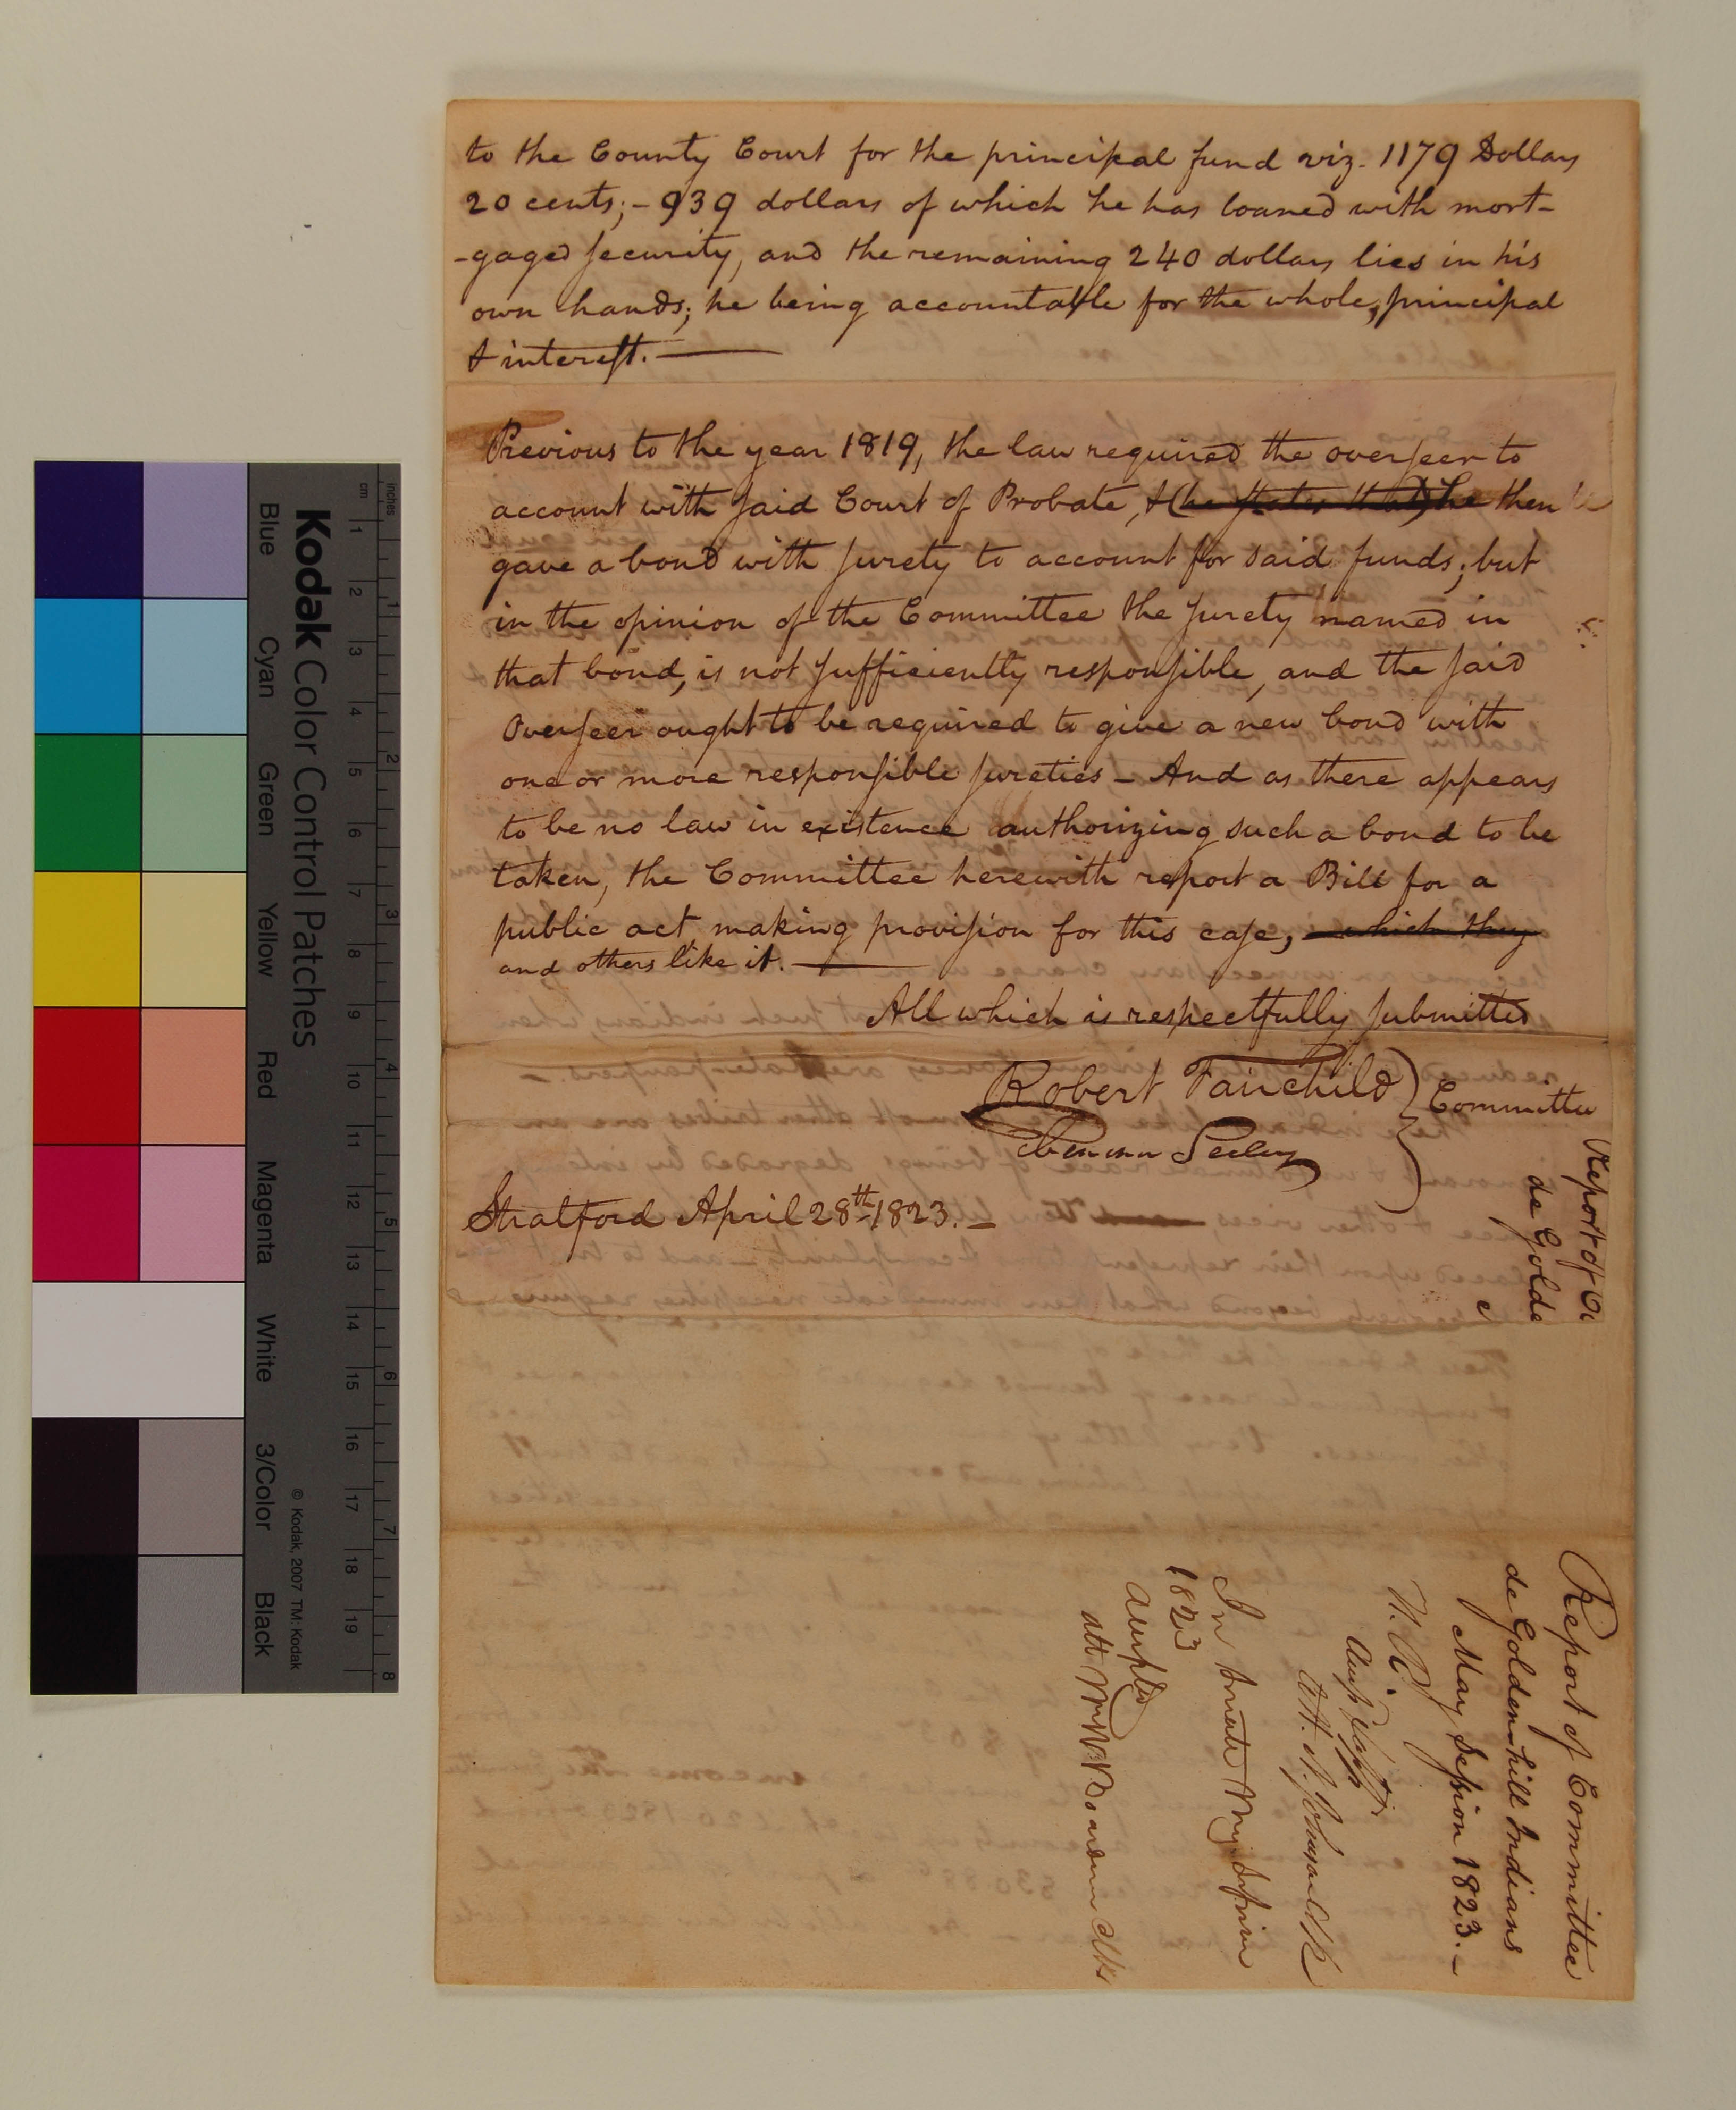 to the County Court for the principal fund viz. 1179 Dollars
20 cents;- 939 dollars of which he has loaned with mort-
-gaged security, and the remaining 240 dollars lies in his
own hands; he being accountable for the whole, principal
& interest.
Previous to the year 1819, the law required the overseer to
account with said Court of Probate, & (he states that) he then
gave a bond with surety to account for said funds; but
in the opinion of the Committee the surety named in
that bond, is not sufficiently responsible, and the said
Overseer ought to be required to give a new bond with
one or more responsible sureties - And as there appears
to be no law in existence authorizing such a bond to be
taken, the Committee herewith report a Bill for a
public act making provision for this case, which they
and others like it.
All which is respectfully submitted
Robert Fairchild
Seeley
Committee
Stratford April 28th 1823. -
Report of Co
de Golde
Report of Committee
de Golden-hill Indians
May Session 1823. -
H. R.
1823
Kodak Color Control Patches
© Kodak, 2007 TM: Kodak
Blue
Cyan
Green
Yellow
Red
Magenta
White
3/Color
Black
inches
1
2
3
4
5
6
7
8
cm
1
2
3
4
5
6
7
8
9
10
11
12
13
14
15
16
17
18
19